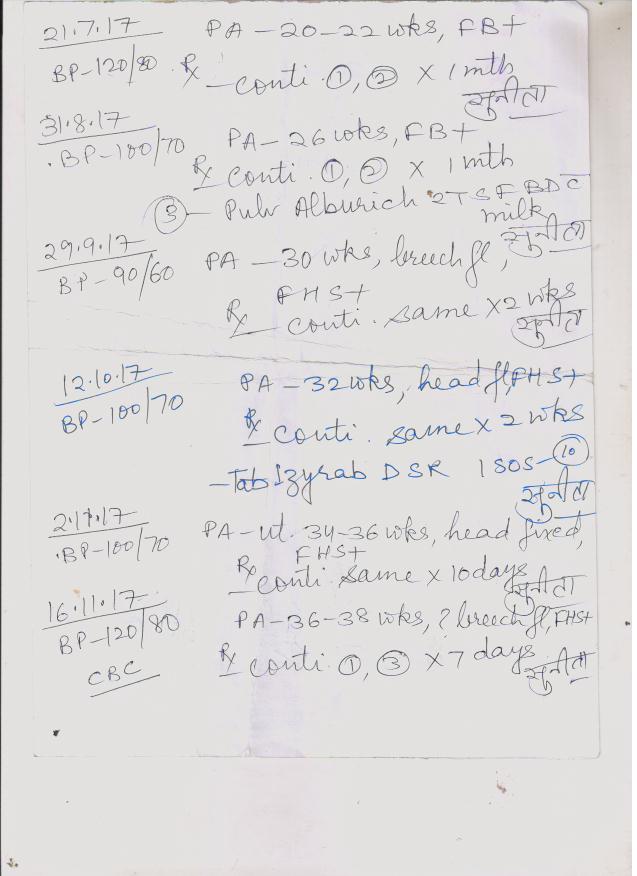 21.7.17 PA - 20-22 wks, FB+
BP-120/80 Rx - conti. ①, ② x 1 mth
सुनीता
31.8.17 PA - 26 wks, FB+
BP-100/70 Rx conti. ①, ② x 1 mth
③ - Pulv Alburich 2TSF BDC̄
milk
सुनीता
29.9.17 PA - 30 wks, breech fl,
BP-90/60 FHS+
Rx conti. same x 2 wks
सुनीता
12.10.17 PA - 32 wks, head fl, FHS+
BP-100/70 Rx conti. same x 2 wks
- Tab Izyrab DSR 1 SOS - ⑩
सुनीता
2.11.17 PA - ut. 34-36 wks, head fixed,
BP-100/70 FHS+
Rx conti same x 10 days
सुनीता
16.11.17 PA - 36-38 wks, ? breech fl, FHS+
BP-120/80 Rx conti ①, ③ x 7 days
CBC सुनीता